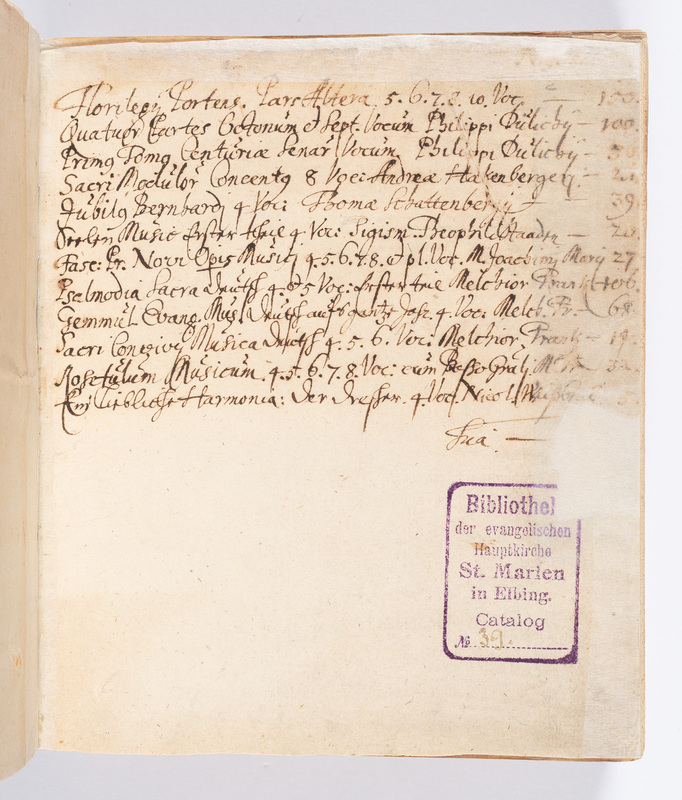 Florilegij Portens. Pars Altera. 5. 6. 7. 8. 10. Voc. — 150.
Quatuor Partes Octonum & Sept. Vocum Philippi Dulichij — 100.
Primg Tomg Centuriæ Senar Vocum. Philippi Dulichij —
Sacri Modulor Concentg 8 Voc: Andreæ Hakenbergerj. —
Jubilg Bernhardj 4 Voc: Thomæ Schattenbergij — 39.
Seelen Music Erster theil 4 Voc: Sigism. Theophil. Staaden —
Fasc: Pr. Novi Operis Musicj 4. 5. 6. 7. 8. & pl. Voc. M. Joachimj Marij 27
Psalmodia Sacra deutsch 4. & 5 Voc: Melchior Franck 106.
Gemmul. Evang. Mus. deutsch aufs gantze Jahr. 4. Voc: Melch. Fr. — 68.
Sacri Convivij Musica deutsch 4. 5. 6. Voc: Melchior. Franck —
Rosetulum Musicum. 4. 5. 6. 7. 8. Voc: cum Basso Gralj.
Ein liebliche Harmonia: 4. Voc. Nicol.
Bibliothek
der evangelischen
Hauptkirche
St. Marien
in Elbing.
Catalog
№ 39.